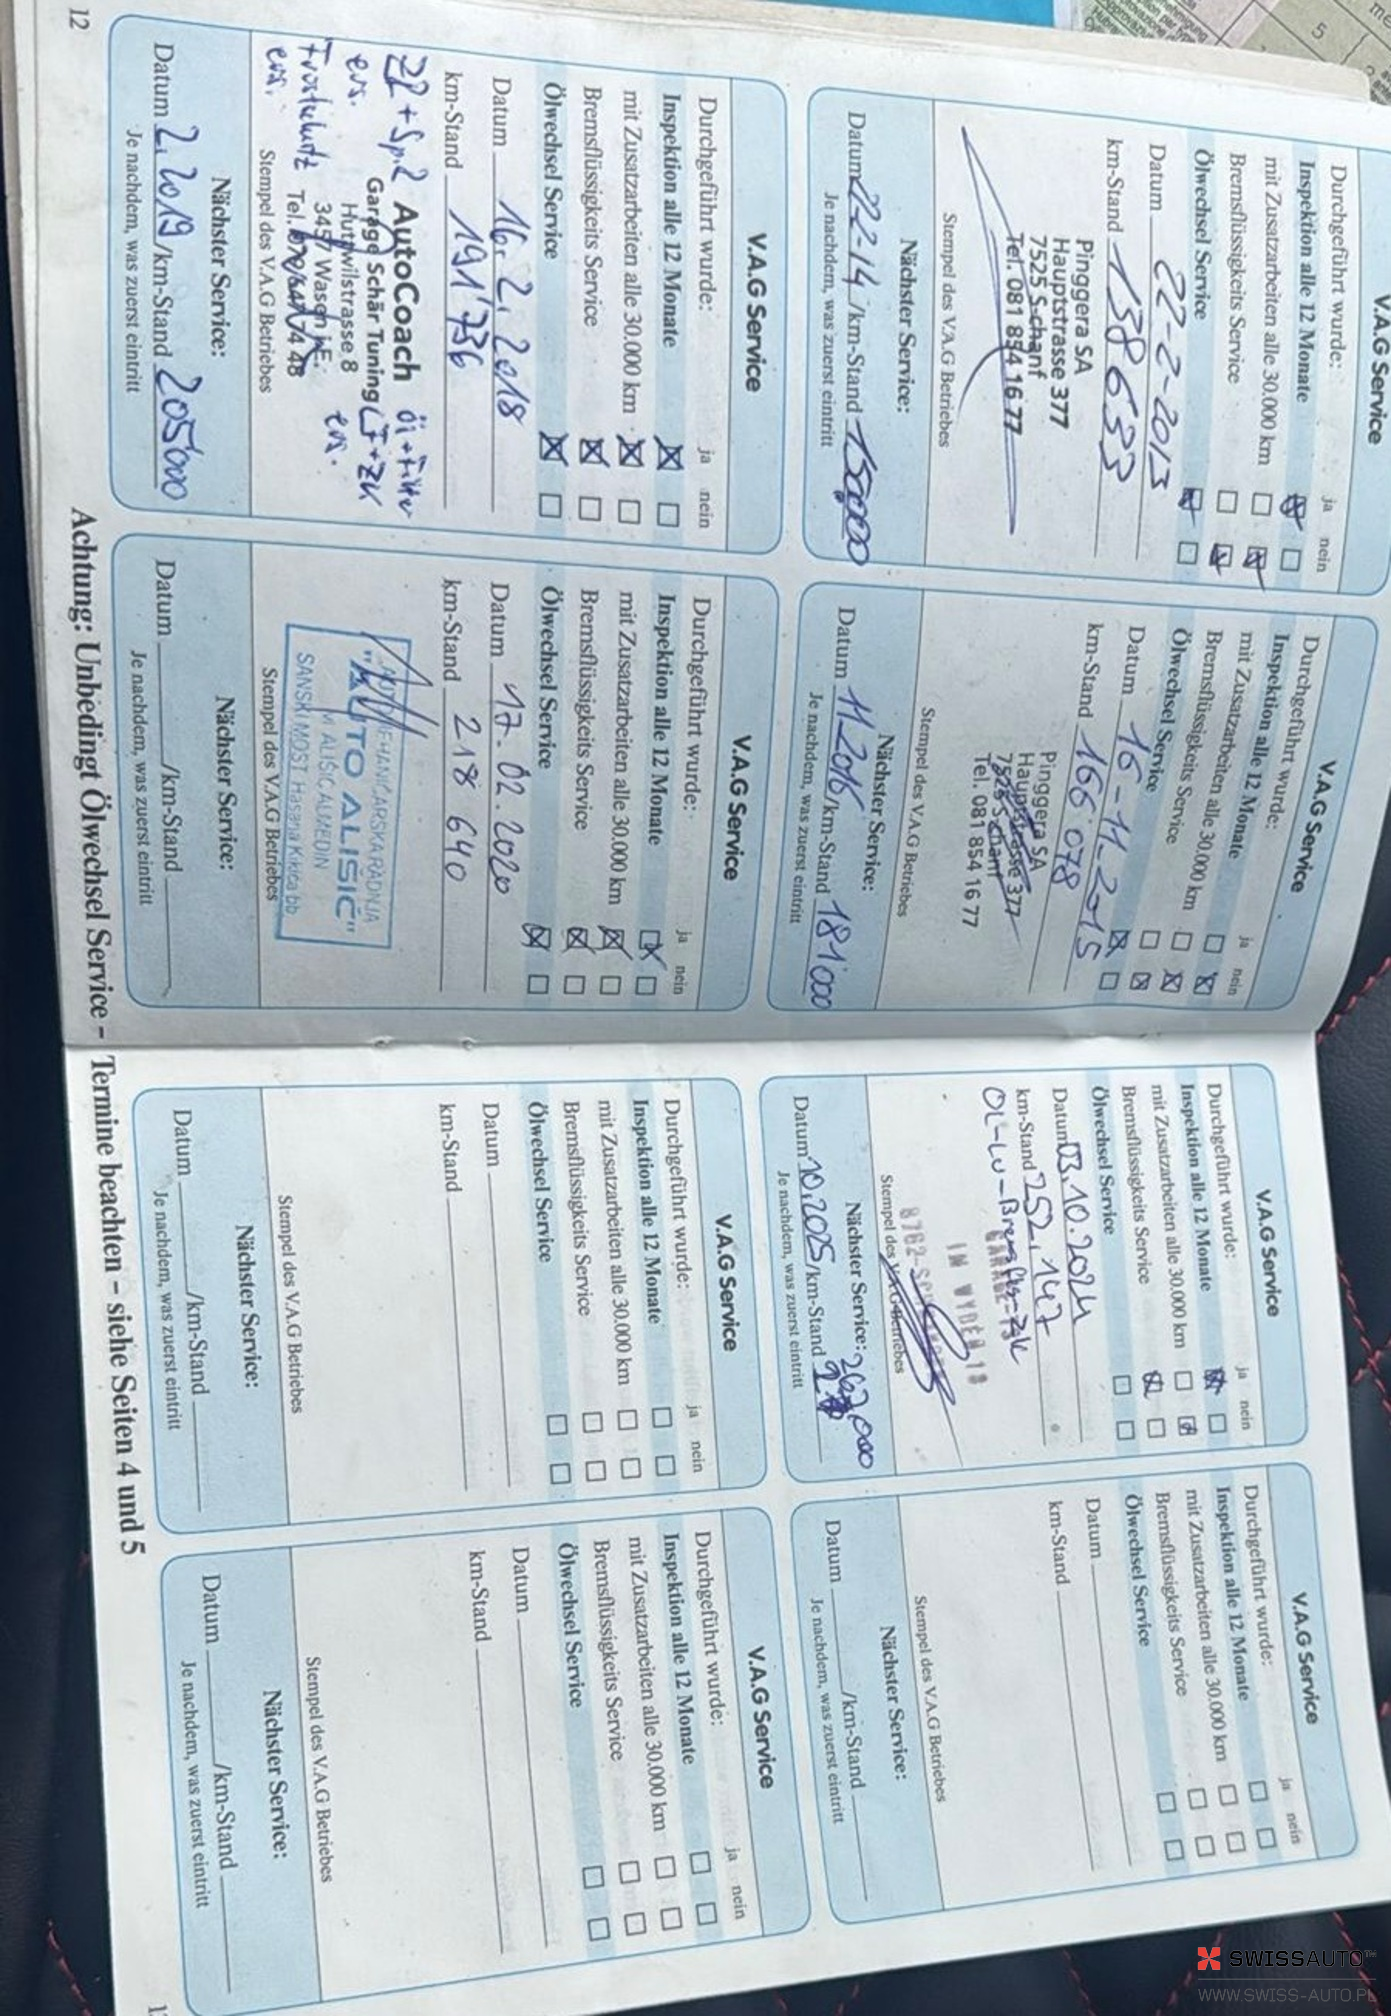 V.A.G Service
Durchgeführt wurde:
ja nein
Inspektion alle 12 Monate
mit Zusatzarbeiten alle 30.000 km
Bremsflüssigkeits Service
Ölwechsel Service
Datum 22-2-2013
km-Stand 138633
Pinggera SA
Hauptstrasse 377
7525 S-chanf
Tel. 081 854 16 77
Stempel des V.A.G Betriebes
Nächster Service:
Datum 22-2-14 /km-Stand 150000
Je nachdem, was zuerst eintritt
V.A.G Service
Durchgeführt wurde:
ja nein
Inspektion alle 12 Monate
mit Zusatzarbeiten alle 30.000 km
Bremsflüssigkeits Service
Ölwechsel Service
Datum 16-11-2015
km-Stand 166 078
Pinggera SA
Hauptstrasse 377
7525 S-chanf
Tel. 081 854 16 77
Stempel des V.A.G Betriebes
Nächster Service:
Datum 11.2016 /km-Stand 181'000
Je nachdem, was zuerst eintritt
V.A.G Service
Durchgeführt wurde:
ja nein
Inspektion alle 12 Monate
mit Zusatzarbeiten alle 30.000 km
Bremsflüssigkeits Service
Ölwechsel Service
Datum 16.2.2018
km-Stand 191'736
AutoCoach
Garage Schär Tuning
Huttwilstrasse 8
3457 Wasen i.E.
Stempel des V.A.G Betriebes
Nächster Service:
Datum 2.2019 /km-Stand 205'000
Je nachdem, was zuerst eintritt
V.A.G Service
Durchgeführt wurde:
ja nein
Inspektion alle 12 Monate
mit Zusatzarbeiten alle 30.000 km
Bremsflüssigkeits Service
Ölwechsel Service
Datum 17.02.2020
km-Stand 218 640
"AUTO ALIŠIĆ"
ALIŠIĆ ALMEDIN
SANSKI MOST Hasana Kikića bb
Stempel des V.A.G Betriebes
Nächster Service:
Datum /km-Stand
Je nachdem, was zuerst eintritt
12
Achtung: Unbedingt Ölwechsel Service –
V.A.G Service
Durchgeführt wurde:
ja nein
Inspektion alle 12 Monate
mit Zusatzarbeiten alle 30.000 km
Bremsflüssigkeits Service
Ölwechsel Service
Datum 03.10.2024
km-Stand 252.147
IM WYDEN 13
Stempel des V.A.G Betriebes
Nächster Service: 267,000
Datum 10.2025 /km-Stand
Je nachdem, was zuerst eintritt
V.A.G Service
Durchgeführt wurde:
ja nein
Inspektion alle 12 Monate
mit Zusatzarbeiten alle 30.000 km
Bremsflüssigkeits Service
Ölwechsel Service
Datum
km-Stand
Stempel des V.A.G Betriebes
Nächster Service:
Datum /km-Stand
Je nachdem, was zuerst eintritt
V.A.G Service
Durchgeführt wurde:
ja nein
Inspektion alle 12 Monate
mit Zusatzarbeiten alle 30.000 km
Bremsflüssigkeits Service
Ölwechsel Service
Datum
km-Stand
Stempel des V.A.G Betriebes
Nächster Service:
Datum /km-Stand
Je nachdem, was zuerst eintritt
V.A.G Service
Durchgeführt wurde:
ja nein
Inspektion alle 12 Monate
mit Zusatzarbeiten alle 30.000 km
Bremsflüssigkeits Service
Ölwechsel Service
Datum
km-Stand
Stempel des V.A.G Betriebes
Nächster Service:
Datum /km-Stand
Je nachdem, was zuerst eintritt
Termine beachten – siehe Seiten 4 und 5
SWISSAUTO
WWW.SWISS-AUTO.PL